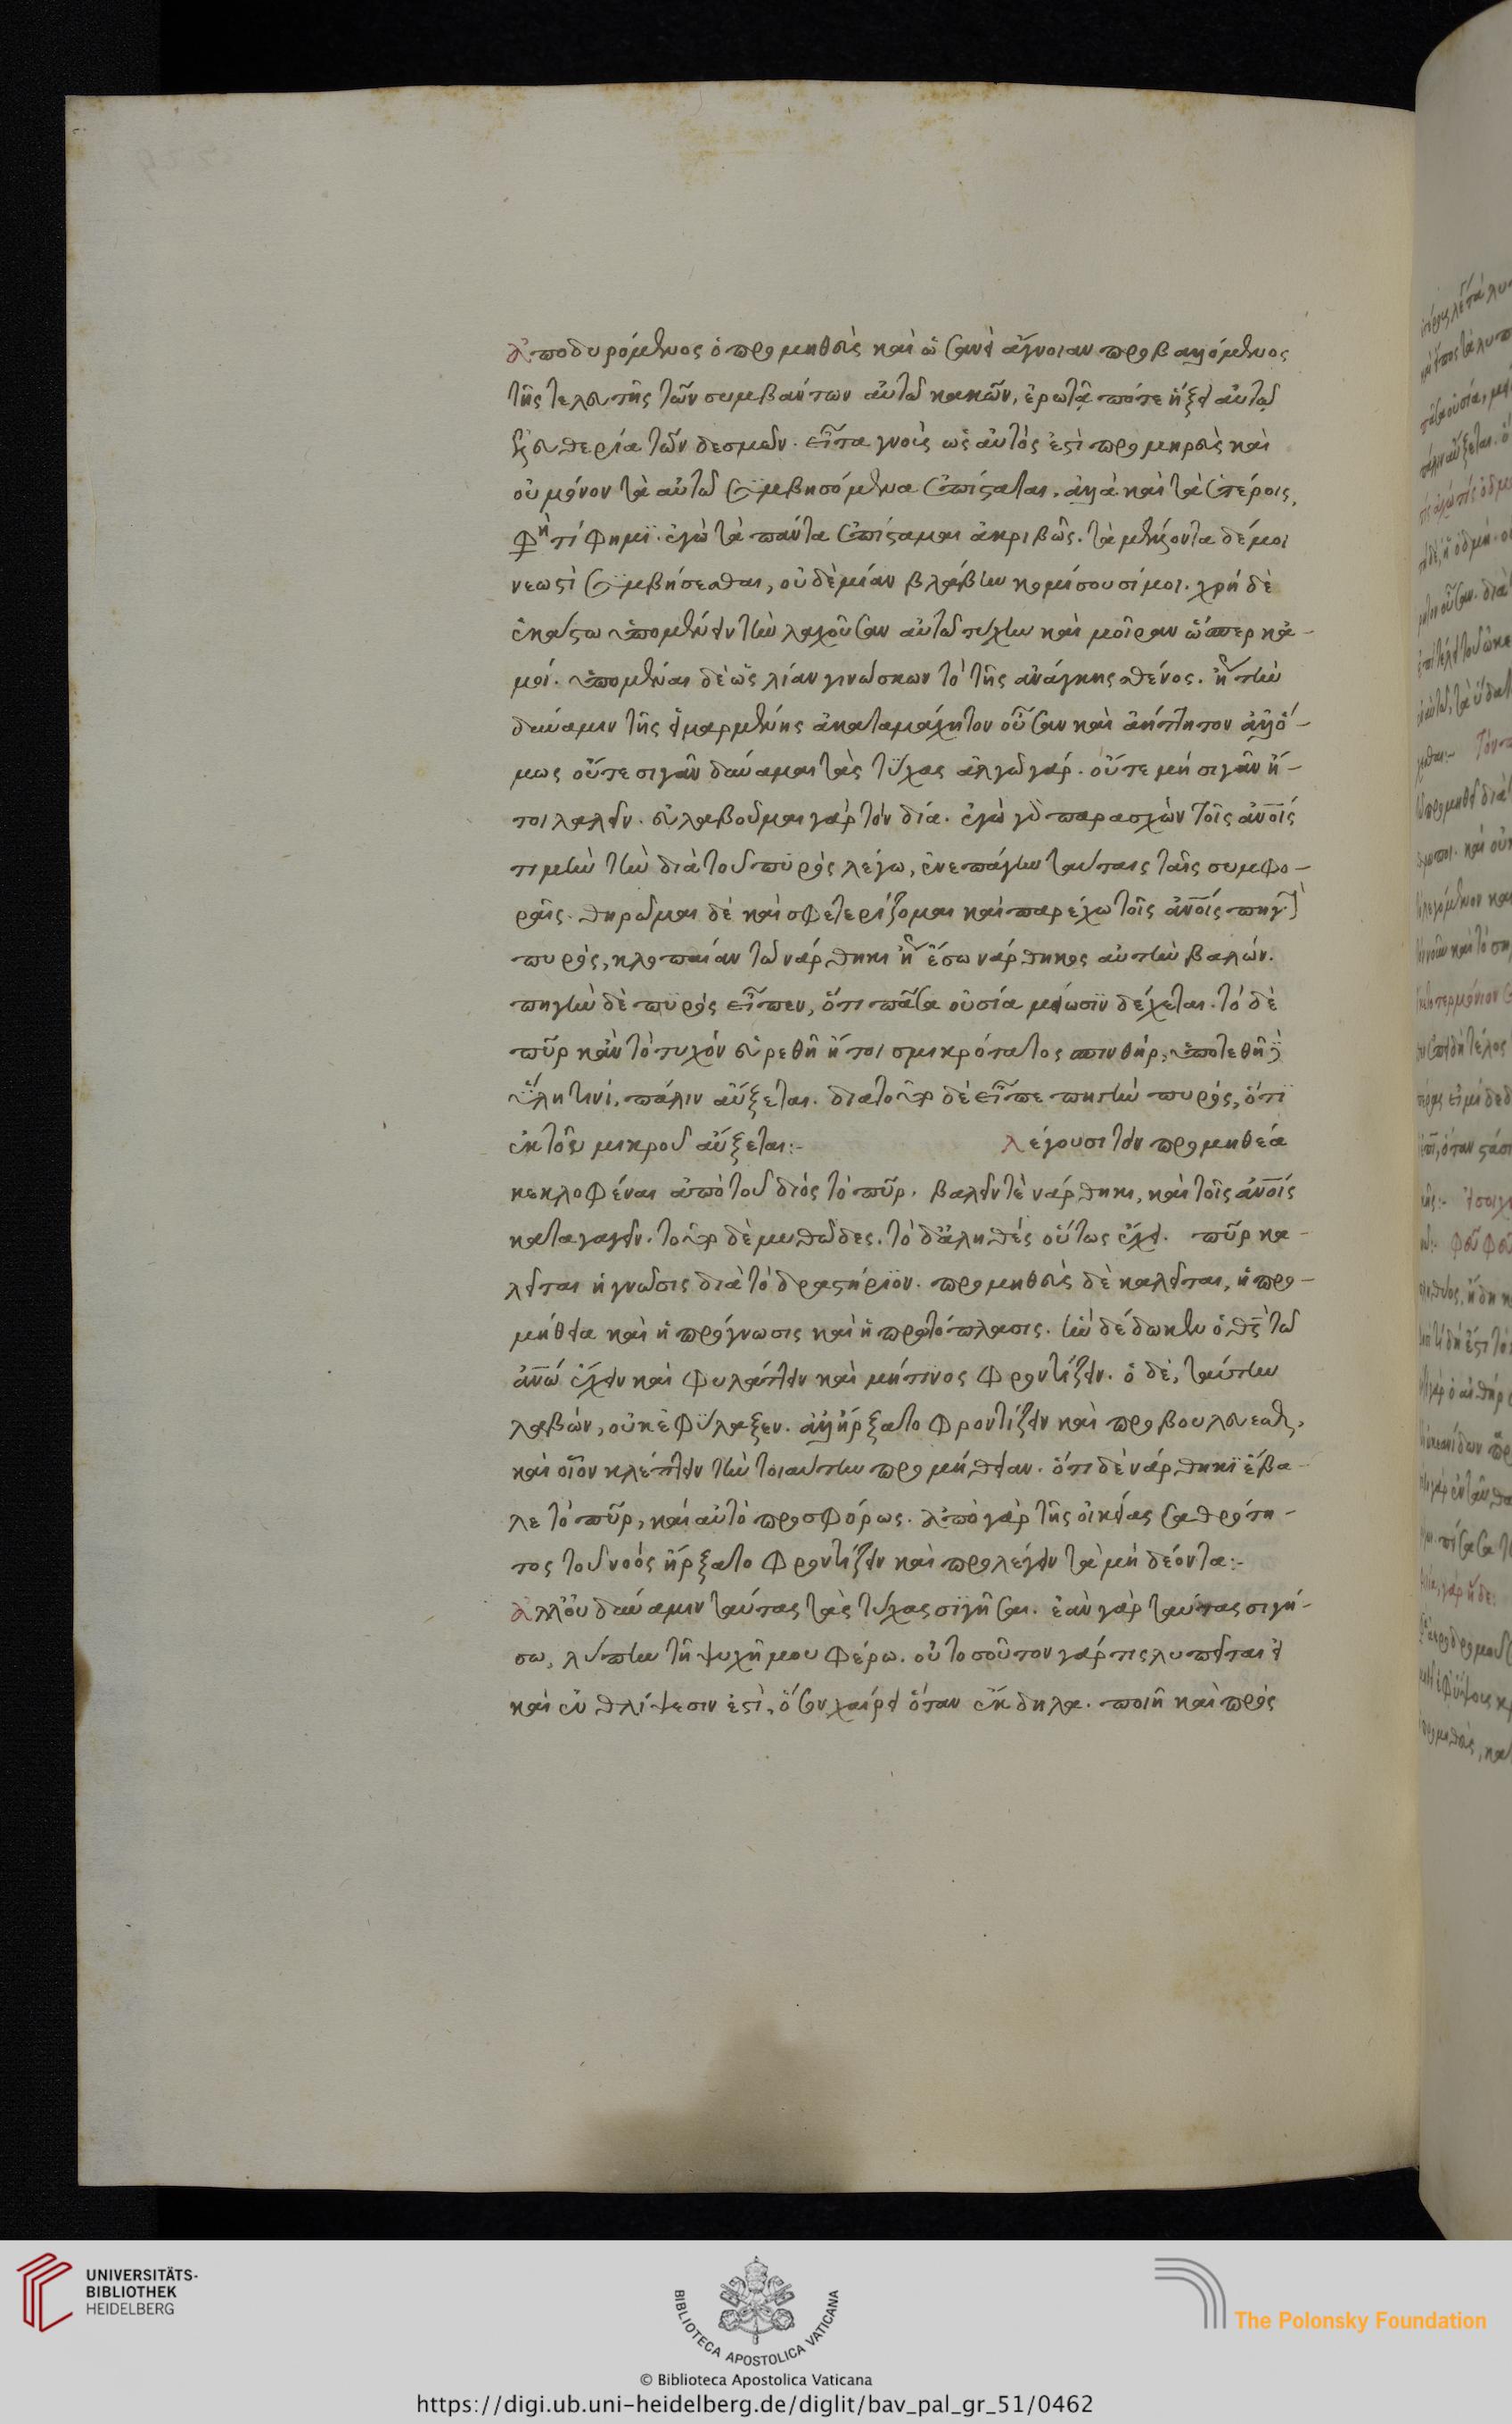 ἀποδυρόμενος ὁ προμηθεὺς καὶ ὡσανεὶ ἄγνοιαν προβαλλόμενος
τῆς τελευτῆς τῶν συμβάντων αὐτῶ κακῶν, ἐρωτᾷ πότε ἥξει αὐτῷ
ἐλευθερία τῶν δεσμῶν. εἶτα γνοὺς ὡς αὐτός ἐστὶ προμηθεὺς καὶ
οὐ μόνον τὰ αὐτῶ συμβησόμενα ἐπίσταται, ἀλλὰ καὶ τὰ ἑτέροις,
φη τί φημι. ἐγὼ τὰ πάντα ἐπίσταμαι ἀκριβῶς. τὰ μέλλοντα δέ μοι
νεωστὶ συμβήσεσθαι, οὐδεμίαν βλάβην κομίσουσί μοι. χρὴ δὲ
ἑκάστω ὑπομένειν τὴν λαχοῦσαν αὐτῶ τύχην καὶ μοῖραν ὥσπερ κἀ-
μοί. ὑπομεῖναι δὲ ὡς λίαν γινώσκων τὸ τῆς ἀνάγκης σθένος. ἢ τὴν
δύναμιν τῆς εἱμαρμένης ἀκαταμάχητον οὖσαν καὶ ἀήττητον ἀλλ' ὅ-
μως οὔτε σιγᾶν δύναμαι τὰς τύχας ἀλγῶ γάρ. οὔτε μὴ σιγᾶν ἤ-
τοι λαλεῖν. εὐλαβοῦμαι γὰρ τὸν δία. ἐγὼ γὰρ παρασχὼν τοῖς ἀνοῖς
τιμὴν τὴν διὰ τοῦ πυρὸς λέγω, ἐνεπάγην ταύταις ταῖς συμφο-
ραῖς. θηρῶμαι δὲ καὶ σφετερίζομαι καὶ παρέχω τοῖς ἀνοῖς πηγὴν
πυρὸς, κλοπαίαν τῶ νάρθηκι ἢ ἔσω νάρθηκος αὐτὴν βαλών.
πηγὴν δὲ πυρὸς εἶπεν, ὅτι πᾶσα οὐσία μείωσιν δέχεται. τὸ δὲ
πῦρ κἂν τὸ τυχὸν εὑρεθῆ ἤτοι σμικρότατος σπινθὴρ, ὑποτεθῆ δὲ
ὕλη τινί, πάλιν αὔξεται. διὰ τοῦτο δὲ εἶπε πηγὴν πυρός, ὅτι
ἐκ τοῦ μικροῦ αὔξεται:- λέγουσι τὸν προμηθέα
κεκλοφέναι ἀπὸ τοῦ διὸς τὸ πῦρ. βαλεῖν τὲ νάρθηκι, καὶ τοῖς ἀνοῖς
καταγαγεῖν. τοῦτο δὲ μυθῶδες. τὸ δἀληθές οὕτως ἔχει. πῦρ κα-
λεῖται ἡ γνῶσις διὰ τὸ δραστήριον. προμηθεὺς δὲ καλεῖται, ἡ προ-
μήθεια καὶ ἡ πρόγνωσις καὶ ἡ πρωτόπλασις. ἣν δέδωκεν ὁ θς τῶ
ἀνω ἔχειν καὶ φυλάττειν καὶ μή τινος φροντίζειν. ὁ δὲ, ταύτην
λαβὼν, οὐκ ἐφύλαξεν. ἀλλ' ἤρξατο φροντίζειν καὶ προβουλεύεσθαι,
καὶ οἷον κλέπτειν τὴν τοιαύτην προμήθειαν. ὅτι δὲ νάρθηκι ἔβα-
λε τὸ πῦρ, καὶ αὐτὸ προσφόρως. ἀπὸ γὰρ τῆς οἰκείας σαθρότη-
τος τοῦ νοὸς ἤρξατο φροντίζειν καὶ προλέγειν τὰ μὴ δέοντα:-
ἀλλ' οὐ δύναμιν ταύτας τὰς τύχας σιγῆσαι. ἐὰν γὰρ ταύτας σιγή-
σω, λύπην τῆ ψυχῆ μου φέρω. οὐ τοσοῦτον γάρ τις λυπεῖται εἰ
καὶ ἐν θλίψεσιν ἐστὶ, ὅσον χαίρει ὅταν ἔκδηλα. ποιῆ καὶ πρὸς
UNIVERSITÄTS-
BIBLIOTHEK
HEIDELBERG
BIBLIOTECA APOSTOLICA VATICANA
The Polonsky Foundation
© Biblioteca Apostolica Vaticana
https://digi.ub.uni-heidelberg.de/diglit/bav_pal_gr_51/0462